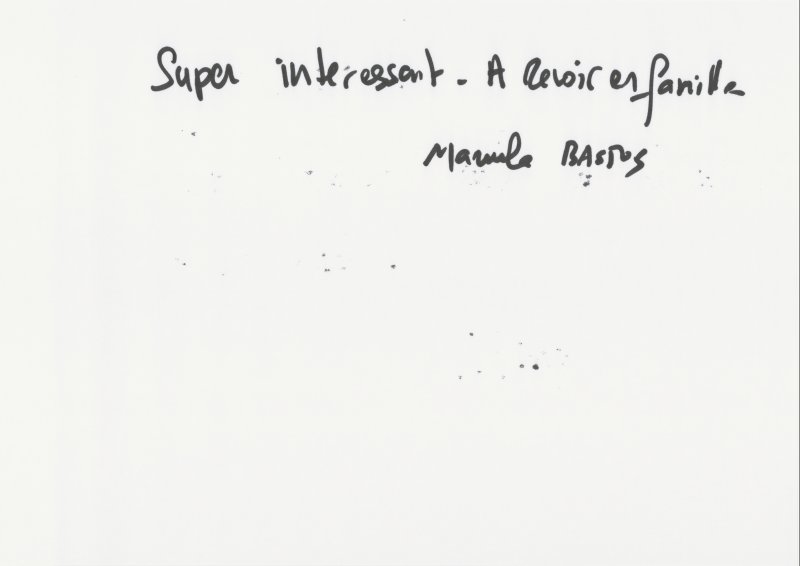 Super interessant. A Revoir en famille
Manuela BASTOS